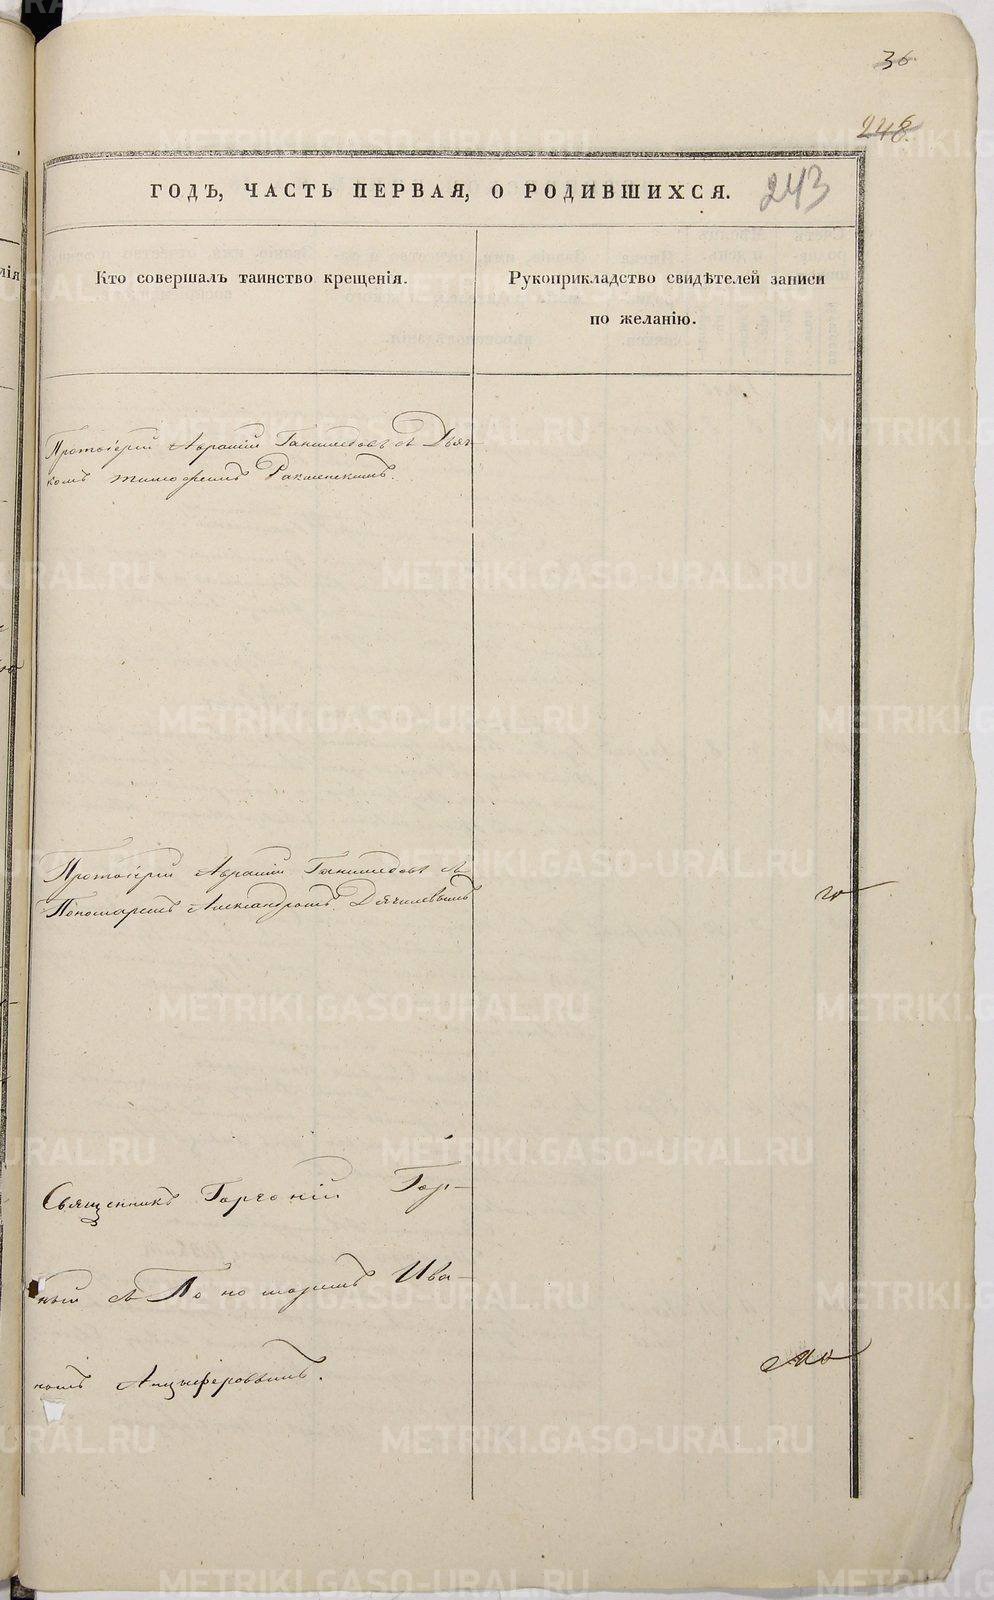 36.
246.
243
ГОДЪ, ЧАСТЬ ПЕРВАЯ, О РОДИВШИХСЯ.
Кто совершалъ таинство крещенія.
Рукоприкладство свидѣтелей записи
по желанію.
Протоіерей Авраамій съ Дьяч-
комъ Тимофеемъ
Протоіерей Авраамій съ
Пономаремъ Александромъ
Священникъ Горгоній Гор-
ный съ Пономаремъ Ива-
номъ Анцыферовымъ.
METRIKI.GASO-URAL.RU